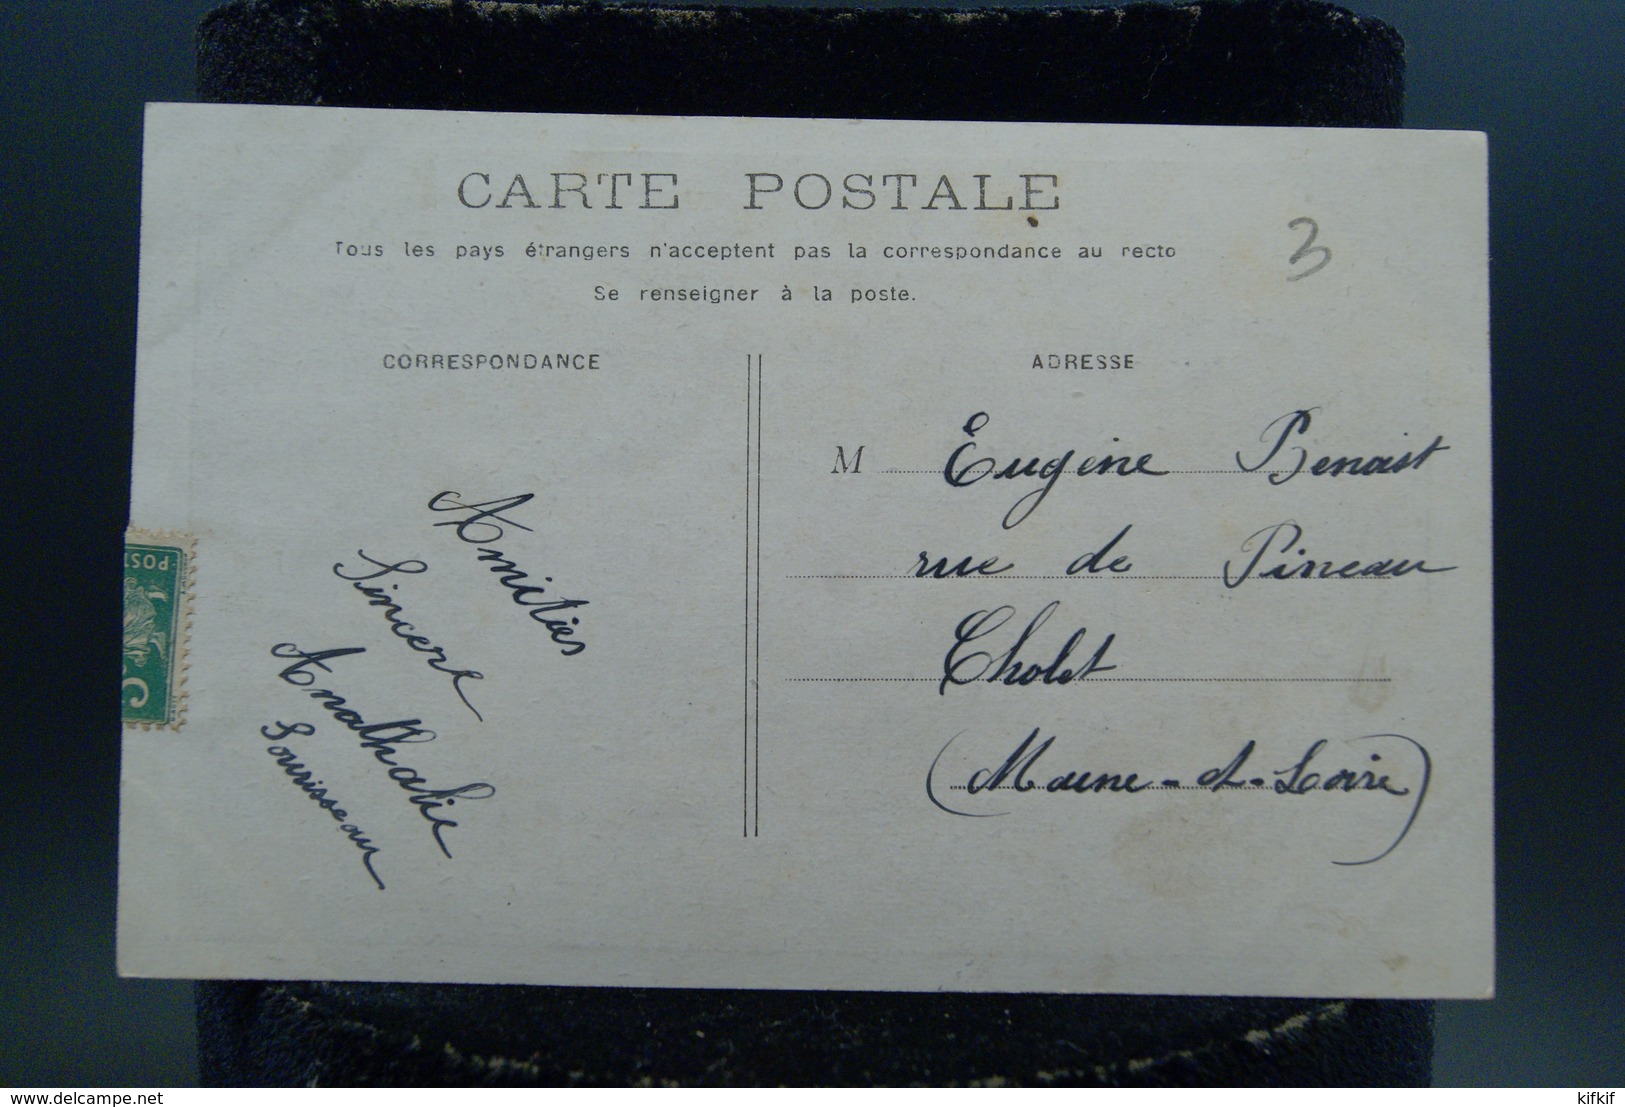 CARTE POSTALE
Tous les pays étrangers n'acceptent pas la correspondance au recto
Se renseigner à la poste.
3
CORRESPONDANCE
Amitiés
Sincère
Anathalie
Sourisseau
POST
ADRESSE
M Eugène Benoist
rue de Pineau
Cholet
(Maine-et-Loire)
delcampe.net
kifkif